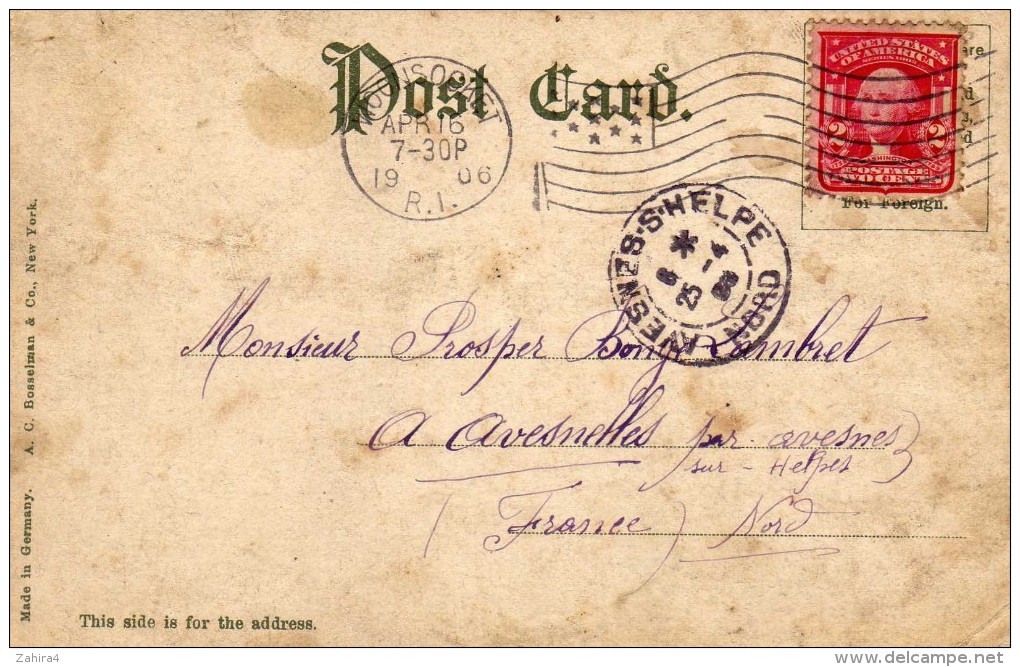 Post Card.
WOONSOCKET
APR 16
7-30P
19 06
R.I.
UNITED STATES
OF AMERICA
SERIES 1902
2 2
WASHINGTON
POSTAGE
TWO CENTS
For Foreign.
AVESNES-S-HELPE
NORD
25 -4
06
Monsieur Prosper Lambret
A avesnelles par avesnes
sur - Helpes
(France) Nord
Made in Germany. A. C. Bosselman & Co., New York.
This side is for the address.
Zahira4
delcampe.net